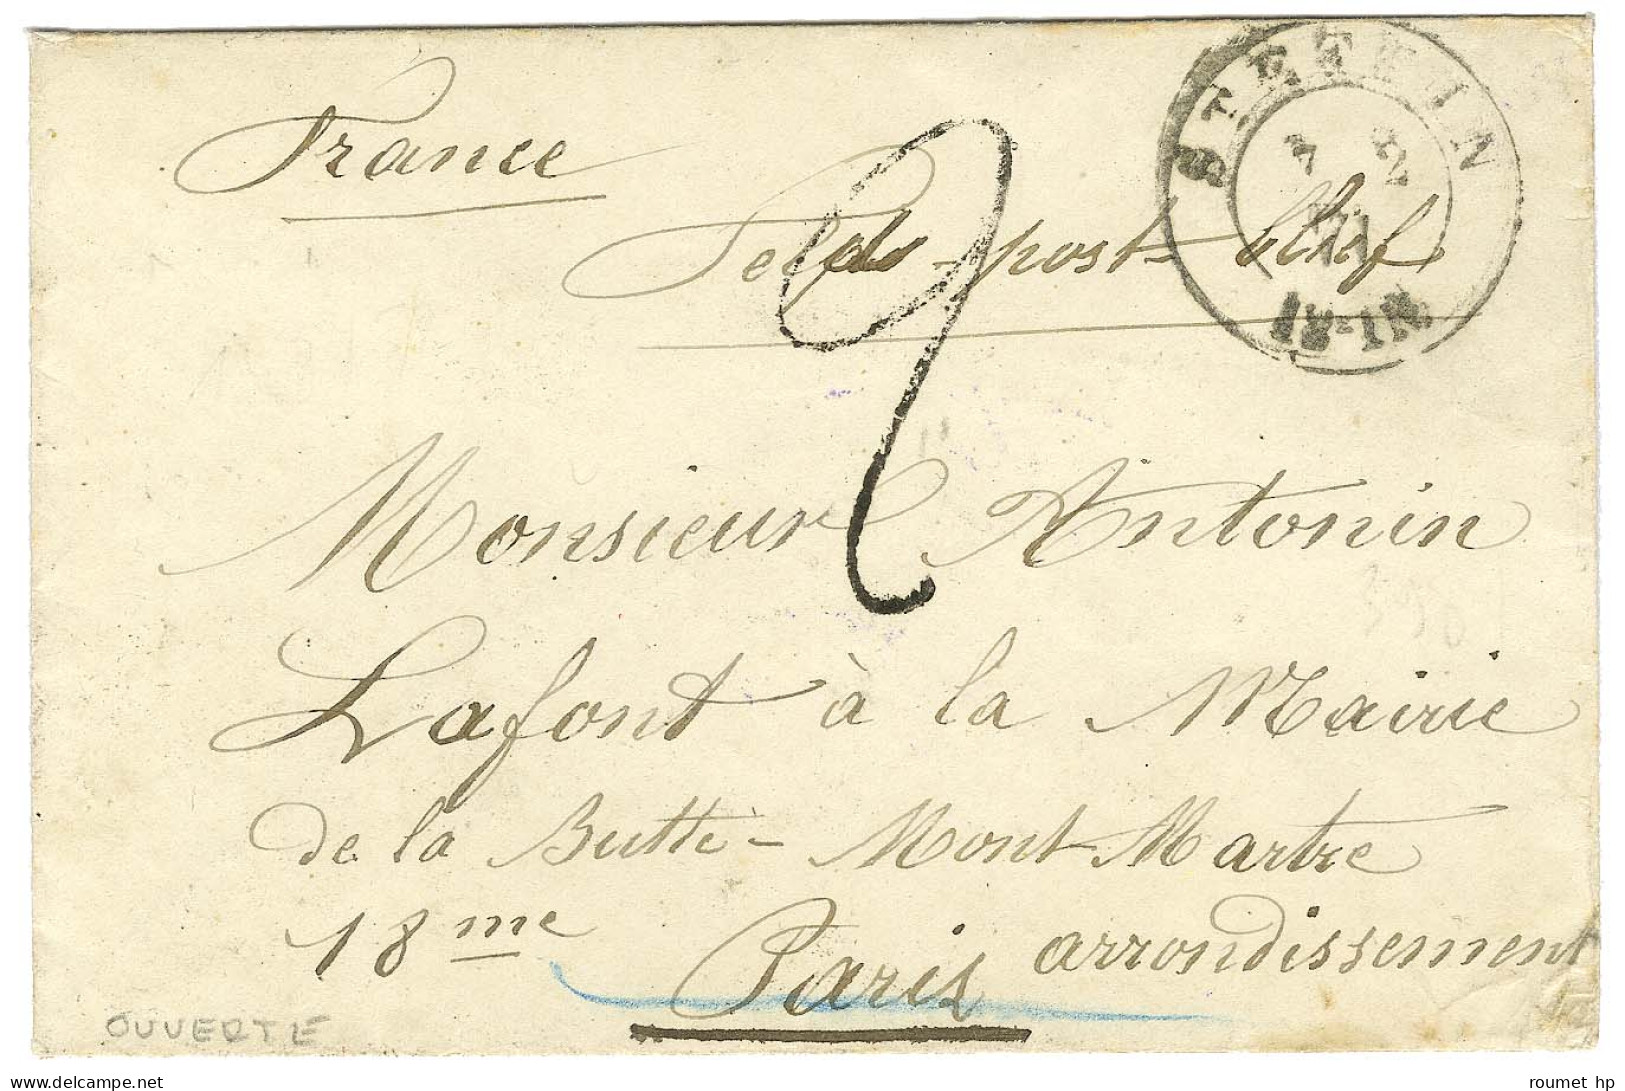 STETTIN
7 2
71
12-1N.
France
Feld-post-brief
2
Monsieur Antonin
Lafont à la Mairie
de la Butte-Mont-Martre
18me arrondissement
Paris
OUVERTE
roumet hp